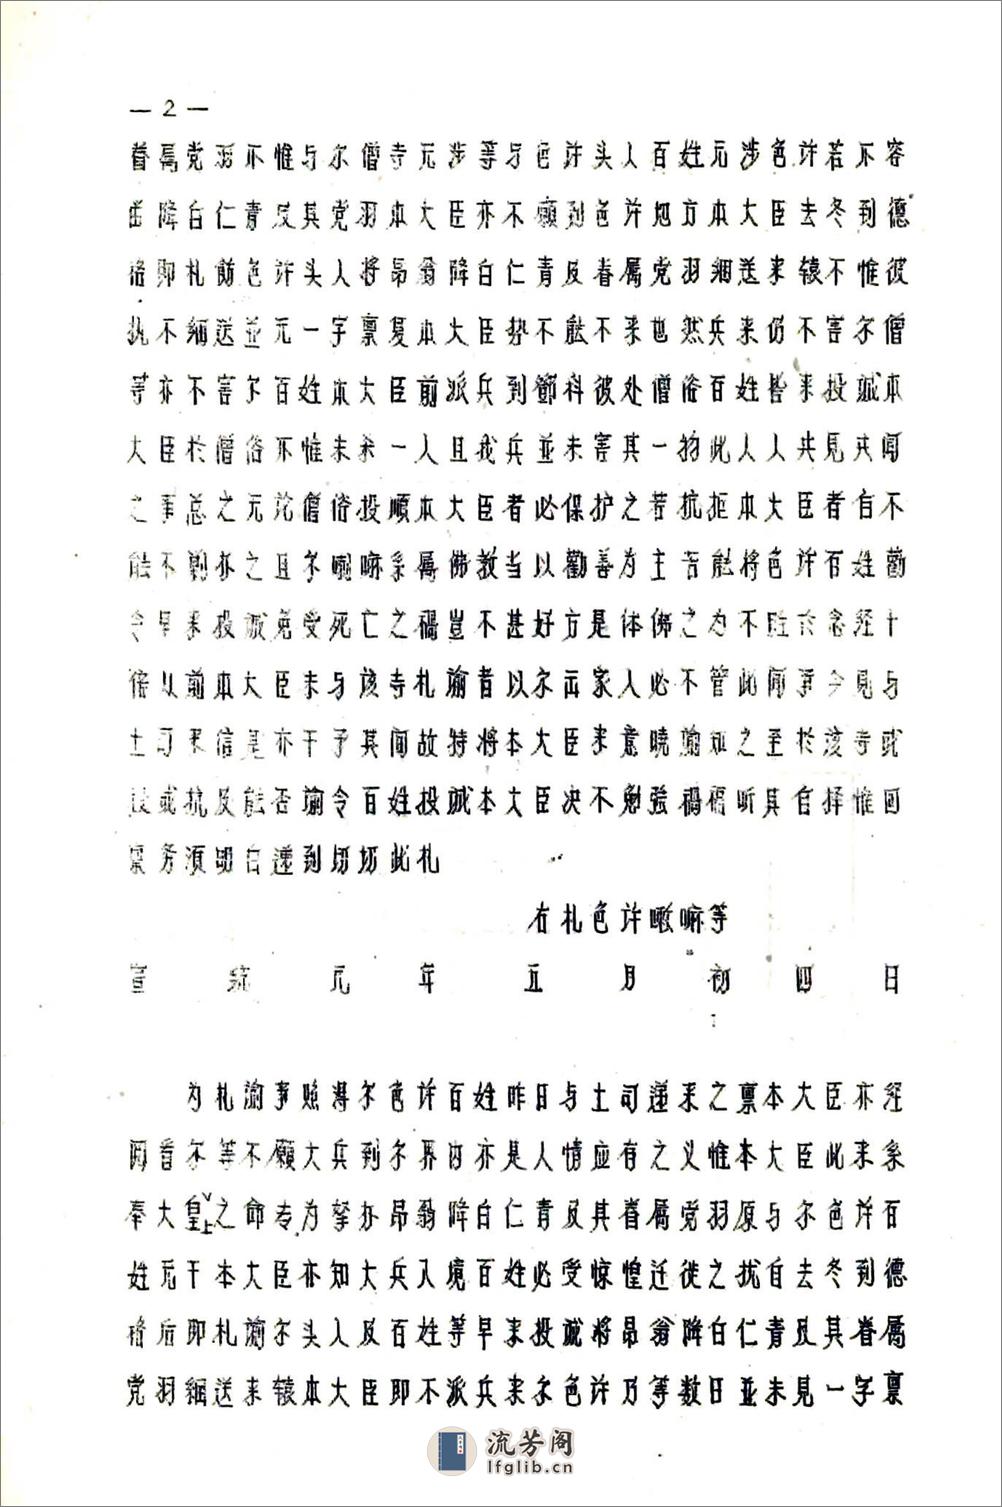 —2—
眷属党羽不惟与尔僧寺元涉等与色许头人百姓元涉色许若不容
匿降白仁青及其党羽本大臣亦不愿到色许地方本大臣去冬到德
格即札饬色许头人将昂翁降白仁青及眷属党羽綑送来辕不惟彼
执不綑送並元一字禀复本大臣势不能不来也然兵来仍不害尔僧
等亦不害尔百姓本大臣前派兵到節科彼处僧俗百姓皆来投誠本
大臣於僧俗不惟未杀一人且我兵並未害其一物此人人共見共闻
之事总之元论僧俗投順本大臣者必保护之若抗拒本大臣者自不
能不剿办之且尔喇嘛系属佛教当以勸善为主若能将色许百姓勸
令早来投誠免受死亡之禍豈不甚好方是体佛之为不胜念经十
倍从前本大臣未与该寺札諭者以尔出家人必不管此闲事今見与
土司来信是亦干予其间故特将本大臣来意曉諭知之至於该寺或
投或抗及能否諭令百姓投誠本大臣决不勉强禍福听其自择惟回
禀务须明白递到切切此札
右札色许喇嘛等
宣統元年五月初四日
为札諭事照得尔色许百姓昨日与土司递来之禀本大臣亦经
阅看尔等不愿大兵到尔界内亦是人情应有之义惟本大臣此来系
奉大皇上之命专为拏办昂翁降白仁青及其眷属党羽原与尔色许百
姓元干本大臣亦知大兵入境百姓必受惊惶迁徙之扰自去冬到德
格后即札諭尔头人及百姓等早来投誠将昂翁降白仁青及其眷属
党羽綑送来辕本大臣即不派兵来尔色许乃等数日並未見一字禀
流芳阁
lfglib.cn